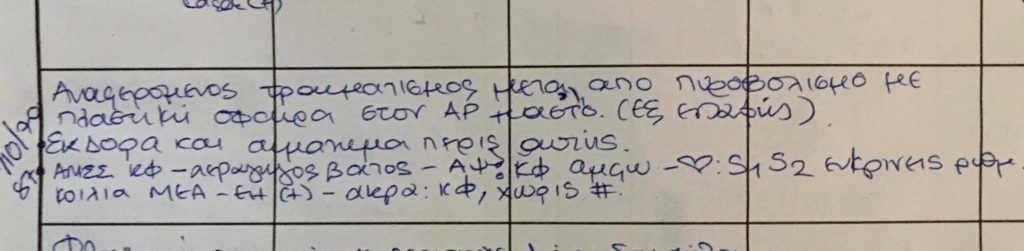 Αναφερόμενος τραυματισμός μετά από πυροβολισμό με
πλαστική σφαίρα στον ΑΡ μαστό. (εξ επαφής)
• Εκδορά και αιμάτωμα πέριξ αυτής.
• ΑΜΣΣ ΚΦ - αεραγωγός βατός - ΑΨ: ΚΦ άμφω - ♡: S1 S2 ευκρινείς ρυθμ.
κοιλιά ΜΕΑ - ΕΗ (+) - άκρα: ΚΦ, χωρίς #.